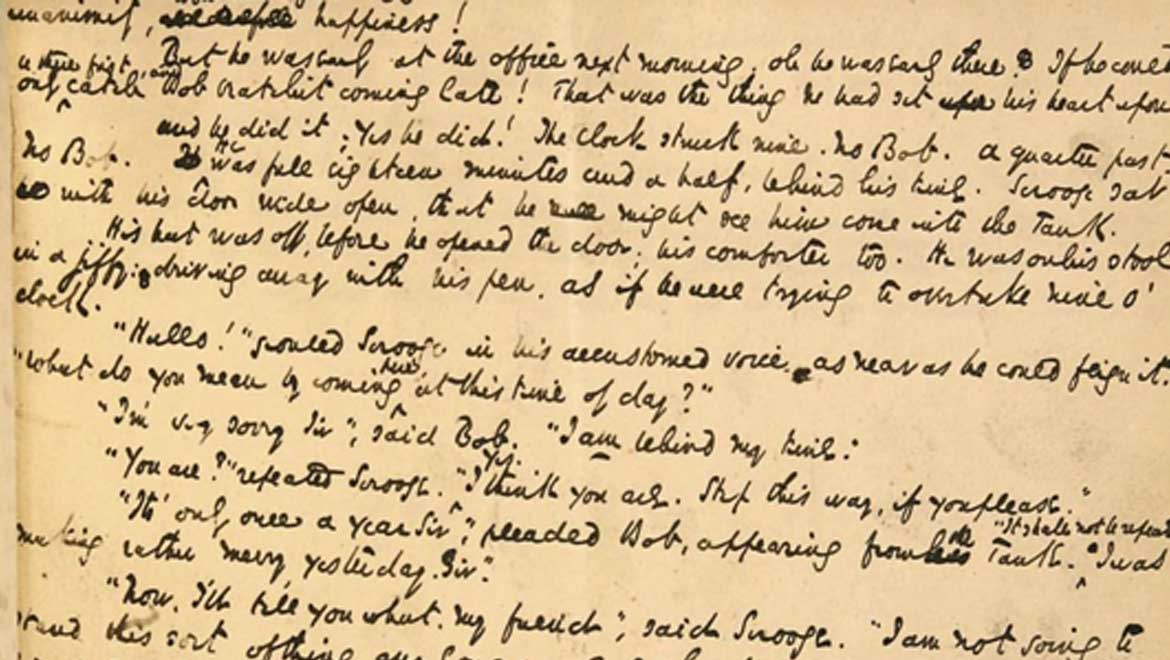 unanimity, happiness!
But he was early at the office next morning; oh he was early there. If he could
be there first, and
only catch Bob Cratchit coming late! That was the thing he had set upon his heart upon
And he did it; yes he did! The clock struck nine. No Bob. A quarter past
No Bob. He was full eighteen minutes and a half, behind his time. Scrooge sat
with his door wide open, that he might see him come into the Tank.
His hat was off, before he opened the door; his comforter too. He was on his stool
in a jiffy: driving away with his pen, as if he were trying to overtake nine o'
clock.
"Hullo!" growled Scrooge in his accustomed voice, as near as he could feign it.
"What do you mean by coming here at this time of day?"
"I'm very sorry Sir", said Bob. "I am behind my time."
"You are?" repeated Scrooge. "Yes. I think you are. Step this way, if you please."
"It's only once a year Sir", pleaded Bob, appearing from the Tank. "It shall not be repeated
I was
making rather merry yesterday. Sir."
"Now, I'll tell you what, my friend", said Scrooge. "I am not going to
stand this sort of thing any